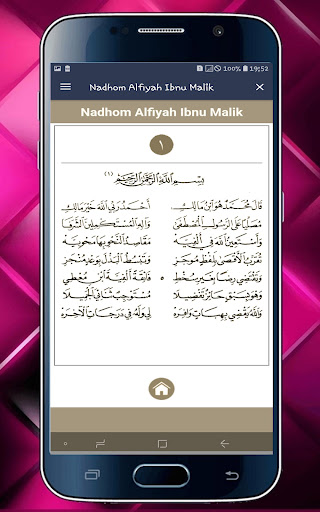 19:52
100%
Nadhom Alfiyah Ibnu Malik ×
Nadhom Alfiyah Ibnu Malik
١
بِسْمِ اللهِ الرَّحْمٰنِ الرَّحِيْمِ (١)
قَالَ مُحَمَّدٌ هُوَ ابْنُ مَالِكِ أَحْمَدُ رَبِّي اللهَ خَيْرَ مَالِكِ
مُصَلِّيًا عَلَى الرَّسُوْلِ الْمُصْطَفَى وَآلِهِ الْمُسْتَكْمِلِيْنَ الشَّرَفَا
وَأَسْتَعِيْنُ اللهَ فِي أَلْفِيَّهْ مَقَاصِدُ النَّحْوِ بِهَا مَحْوِيَّهْ
تُقَرِّبُ الْأَقْصَى بِلَفْظٍ مُوْجَزِ وَتَبْسُطُ الْبَذْلَ بِوَعْدٍ مُنْجَزِ
وَتَقْتَضِي رِضًا بِغَيْرِ سُخْطِ ٥ فَائِقَةً أَلْفِيَّةَ ابْنِ مُعْطِي
وَهُوَ بِسَبْقٍ حَائِزٌ تَفْضِيْلَا مُسْتَوْجِبٌ ثَنَائِيَ الْجَمِيْلَا
وَاللهُ يَقْضِي بِهِبَاتٍ وَافِرَهْ لِي وَلَهُ فِي دَرَجَاتِ الْآخِرَهْ